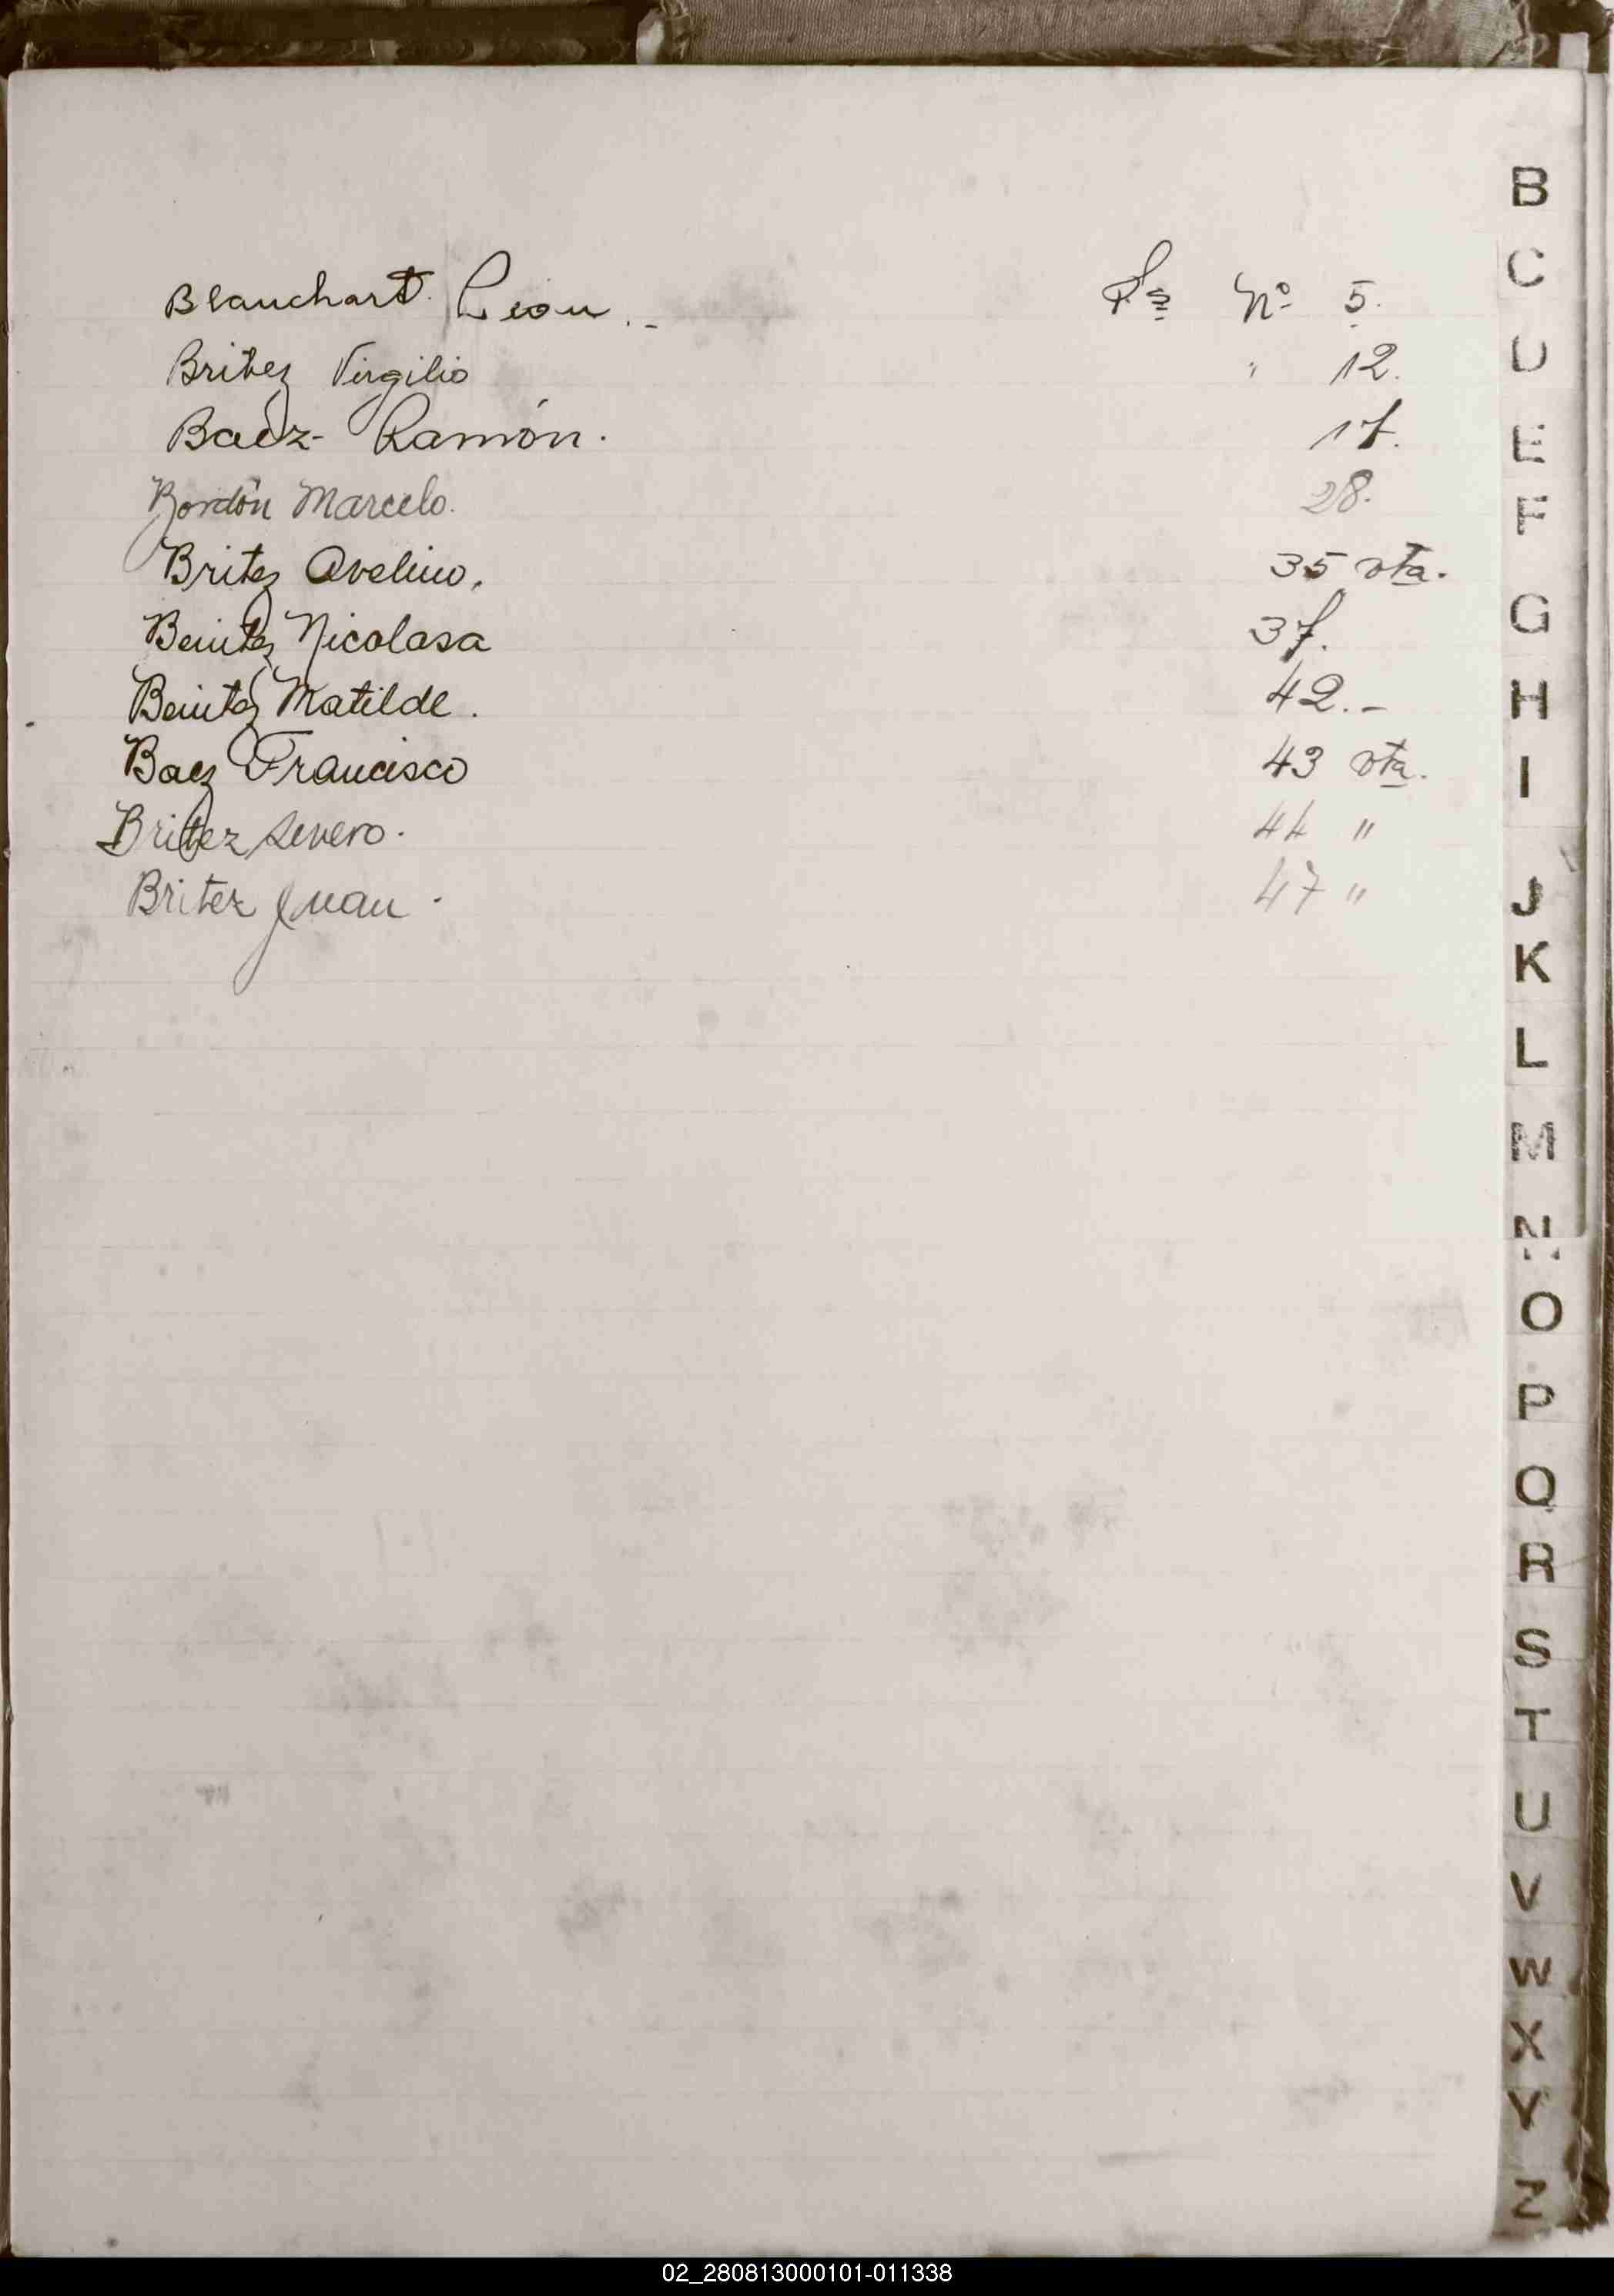 Blanchart León.- Fs Nº 5.
Britez Virgilio " 12.
Baez- Ramón. 17.
Bordón Marcelo. 28.
Britez Avelino. 35 vta.
Benitez Nicolasa 37.
Benitez Matilde. 42.-
Baez Francisco 43 vta.
Britez Severo. 44 "
Britez Juan. 47 "
B
C
D
E
F
G
H
I
J
K
L
M
N
O
P
Q
R
S
T
U
V
W
X
Y
Z
02_280813000101-011338